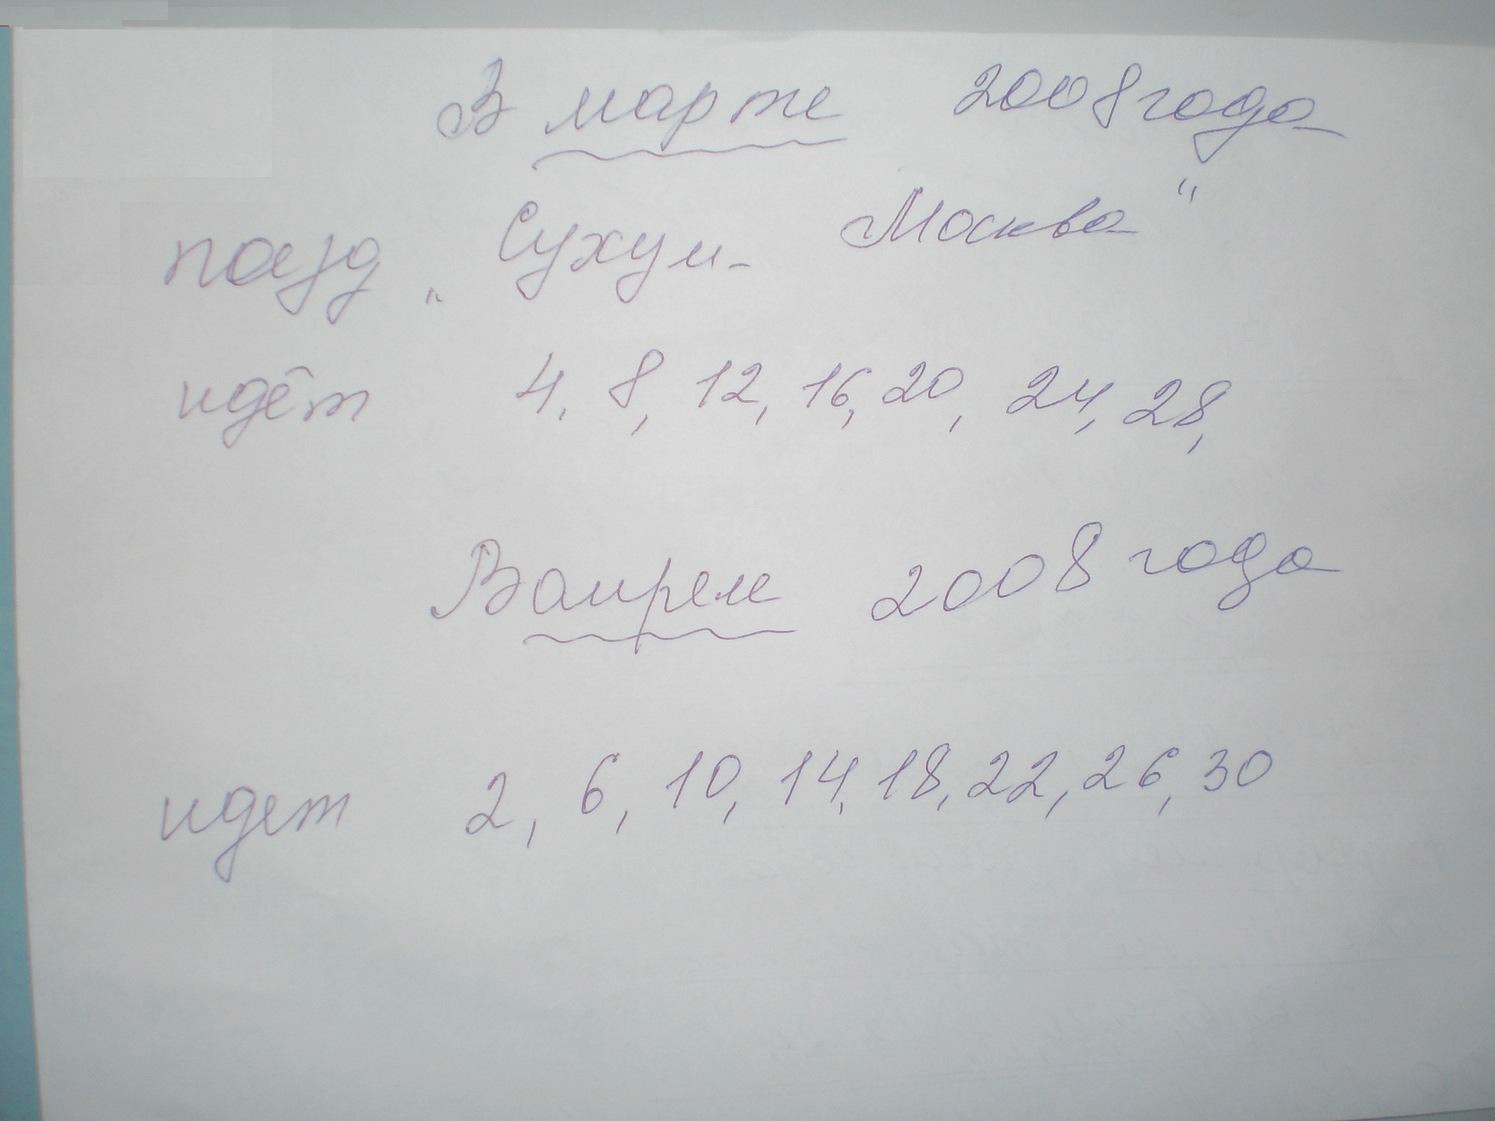 В марте 2008 года
поезд „Сухум- Москва"
идёт 4, 8, 12, 16, 20, 24, 28,
В апреле 2008 года
идет 2, 6, 10, 14, 18, 22, 26, 30